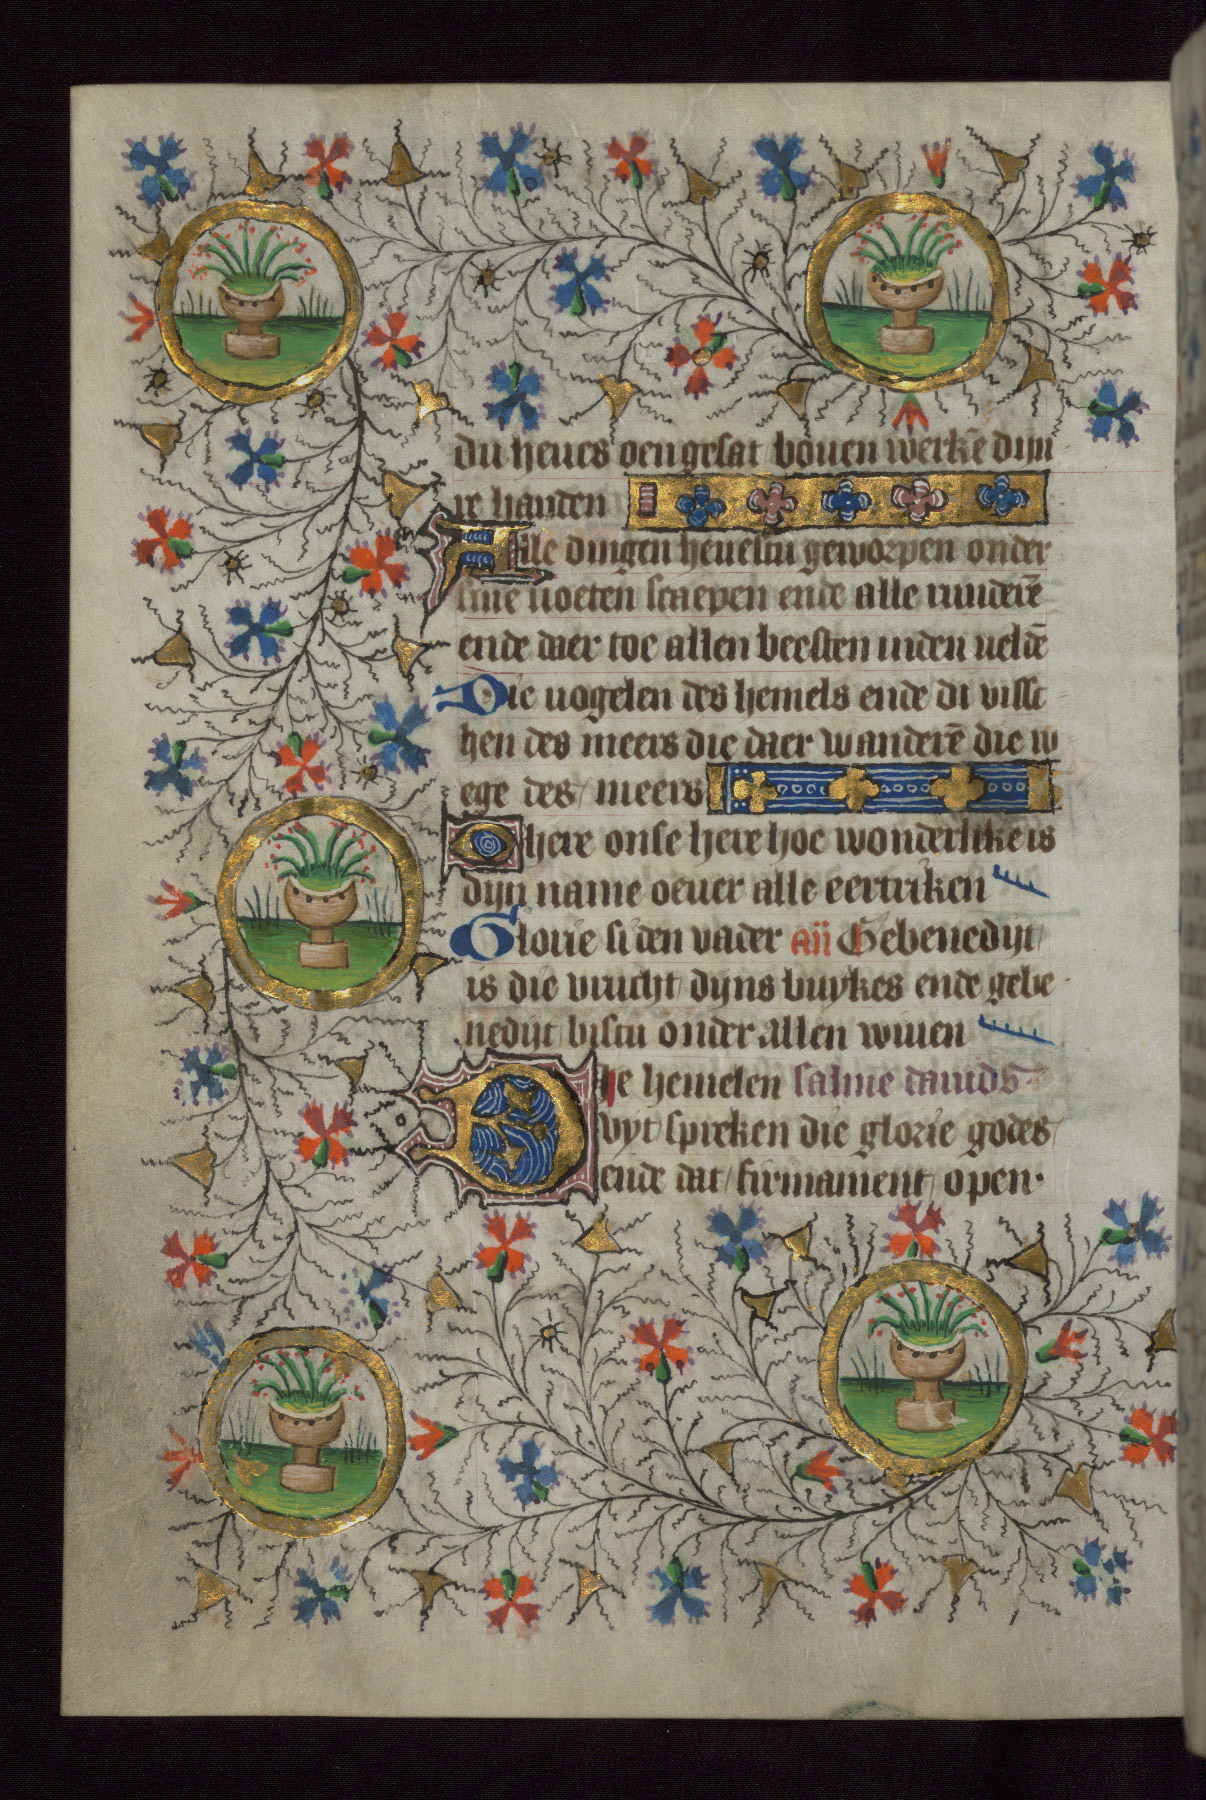 du heues oen gesat bouen werkē dijn
re handen
Alle dingen heuestu geworpen onder
sine uoeten scaepen ende alle runderē
ende daer toe allen beesten inden ueldē
Die uogelen des hemels ende di vissc
hen des meers die daer wanderē die w
ege des meers
O here onse here hoe wonderlike is
dijn name oeuer alle eertriken
Glorie si den vader an̄ Gebenedijt
is die vrucht dijns buykes ende gebe
nedijt bistu onder allen wiuen
Die hemelen salme dauids
vyt spreken die glorie godes
ende dat firmament open